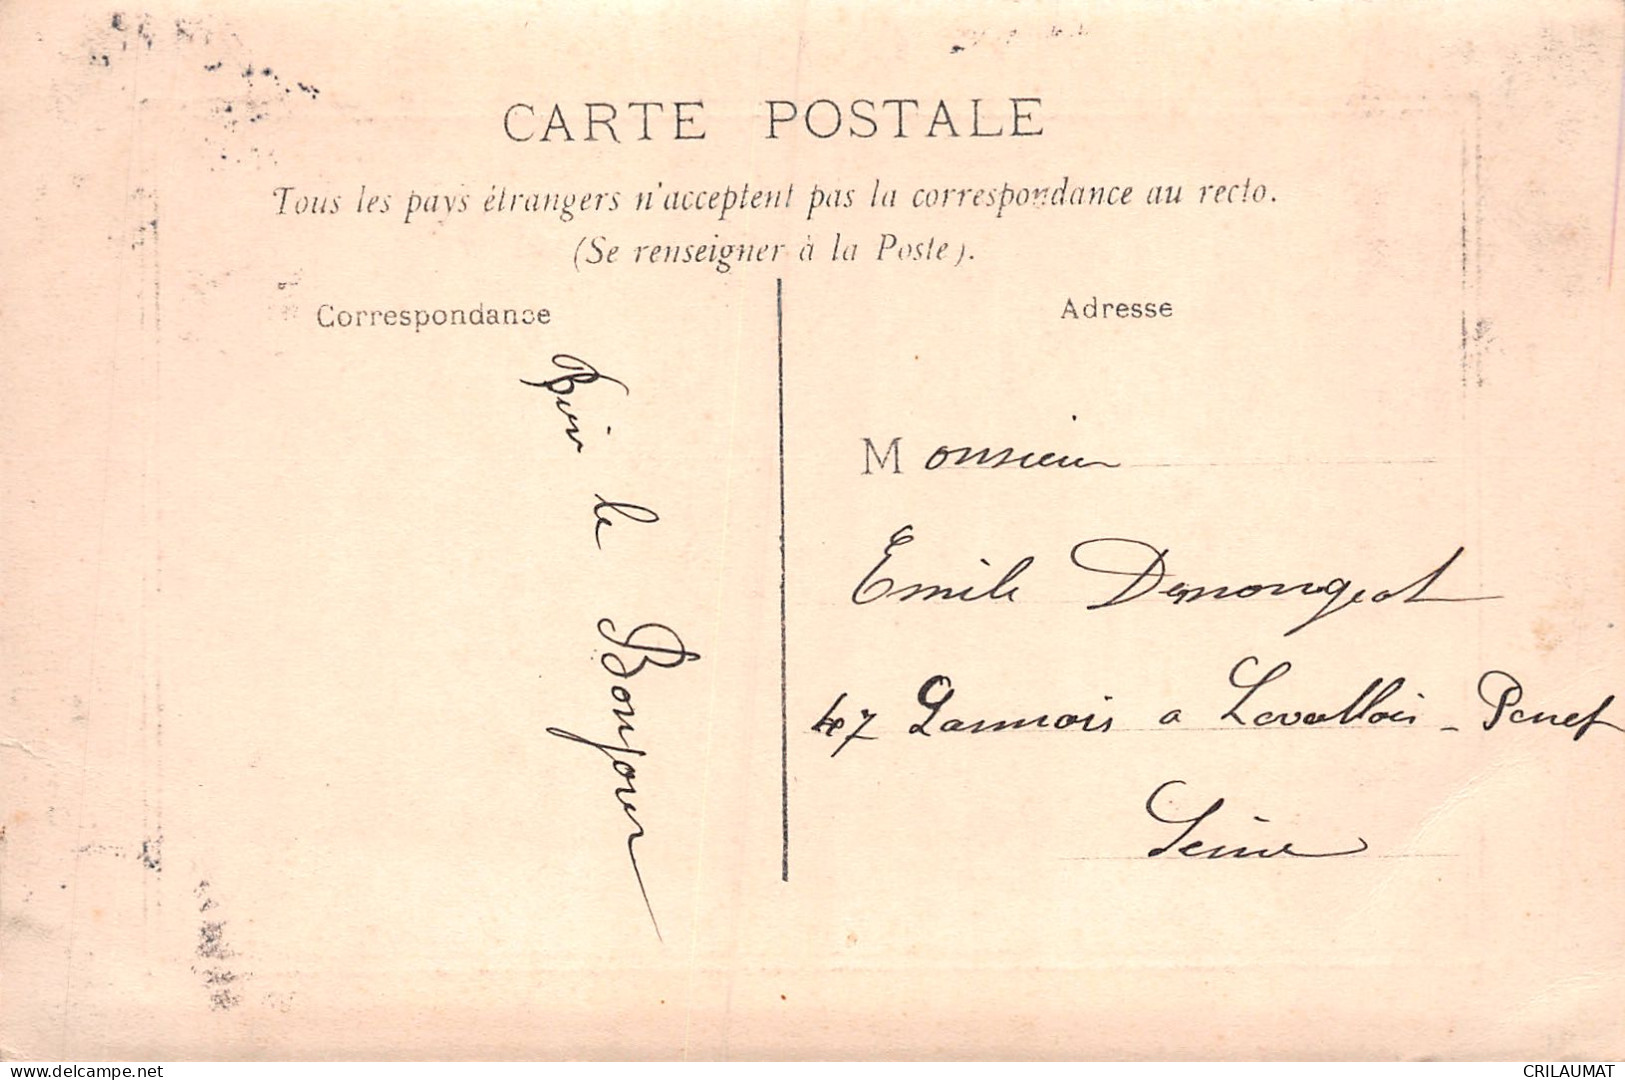 CARTE POSTALE
Tous les pays étrangers n'acceptent pas la correspondance au recto.
(Se renseigner à la Poste).
Correspondance
Bien le Bonjour
Adresse
Monsieur
Emile Demongeot
47 Lannois a Levallois - Perret
Seine
www.delcampe.net
CRILAUMAT